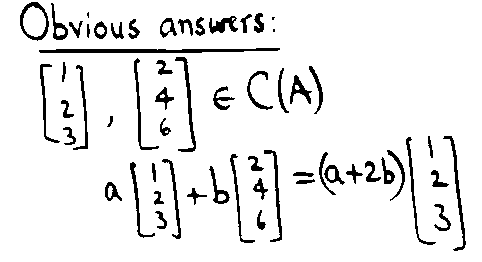 Obvious answers:
[1 2 3], [2 4 6] ∈ C(A)
a[1 2 3] + b[2 4 6] = (a+2b)[1 2 3]